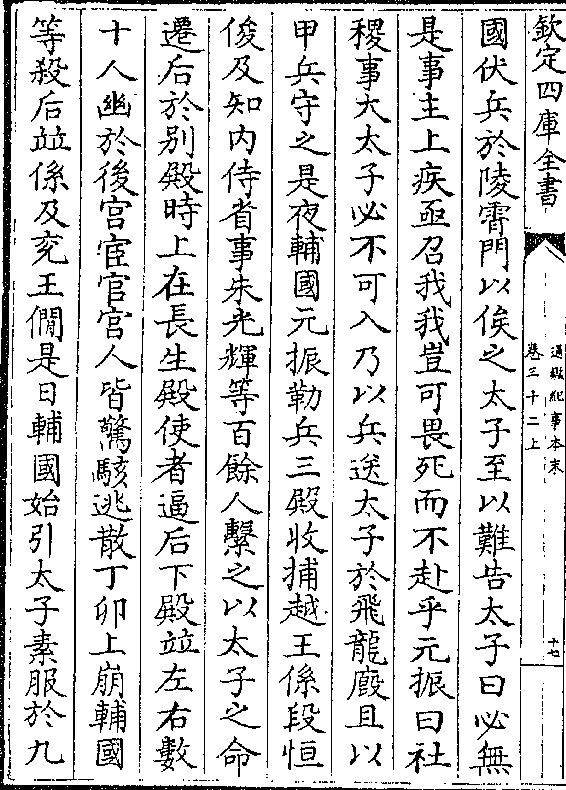 欽定四庫全書
通鑑紀事本末
卷三十二上
十七
國伏兵於陵霄門以俟之太子至以難告太子曰必無
是事主上疾亟召我我豈可畏死而不赴乎元振曰社
稷事大太子必不可入乃以兵送太子於飛龍廐且以
甲兵守之是夜輔國元振勒兵三殿收捕越王係段恒
俊及知内侍省事朱光輝等百餘人繫之以太子之命
遷后於别殿時上在長生殿使者逼后下殿竝左右數
十人幽於後宫宦官宫人皆驚駭逃散丁卯上崩輔國
等殺后竝係及兖王僩是日輔國始引太子素服於九